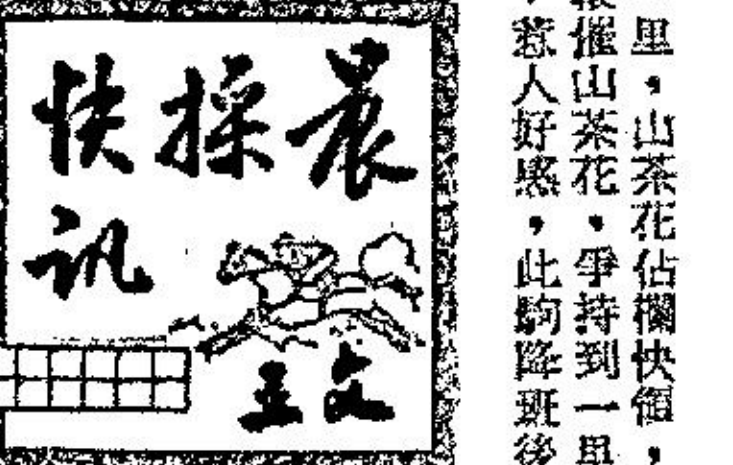 晨操快
訊
文
里，山茶花佔欄快領，
催山茶花，爭持到一里
，惹人好感，此駒降班後